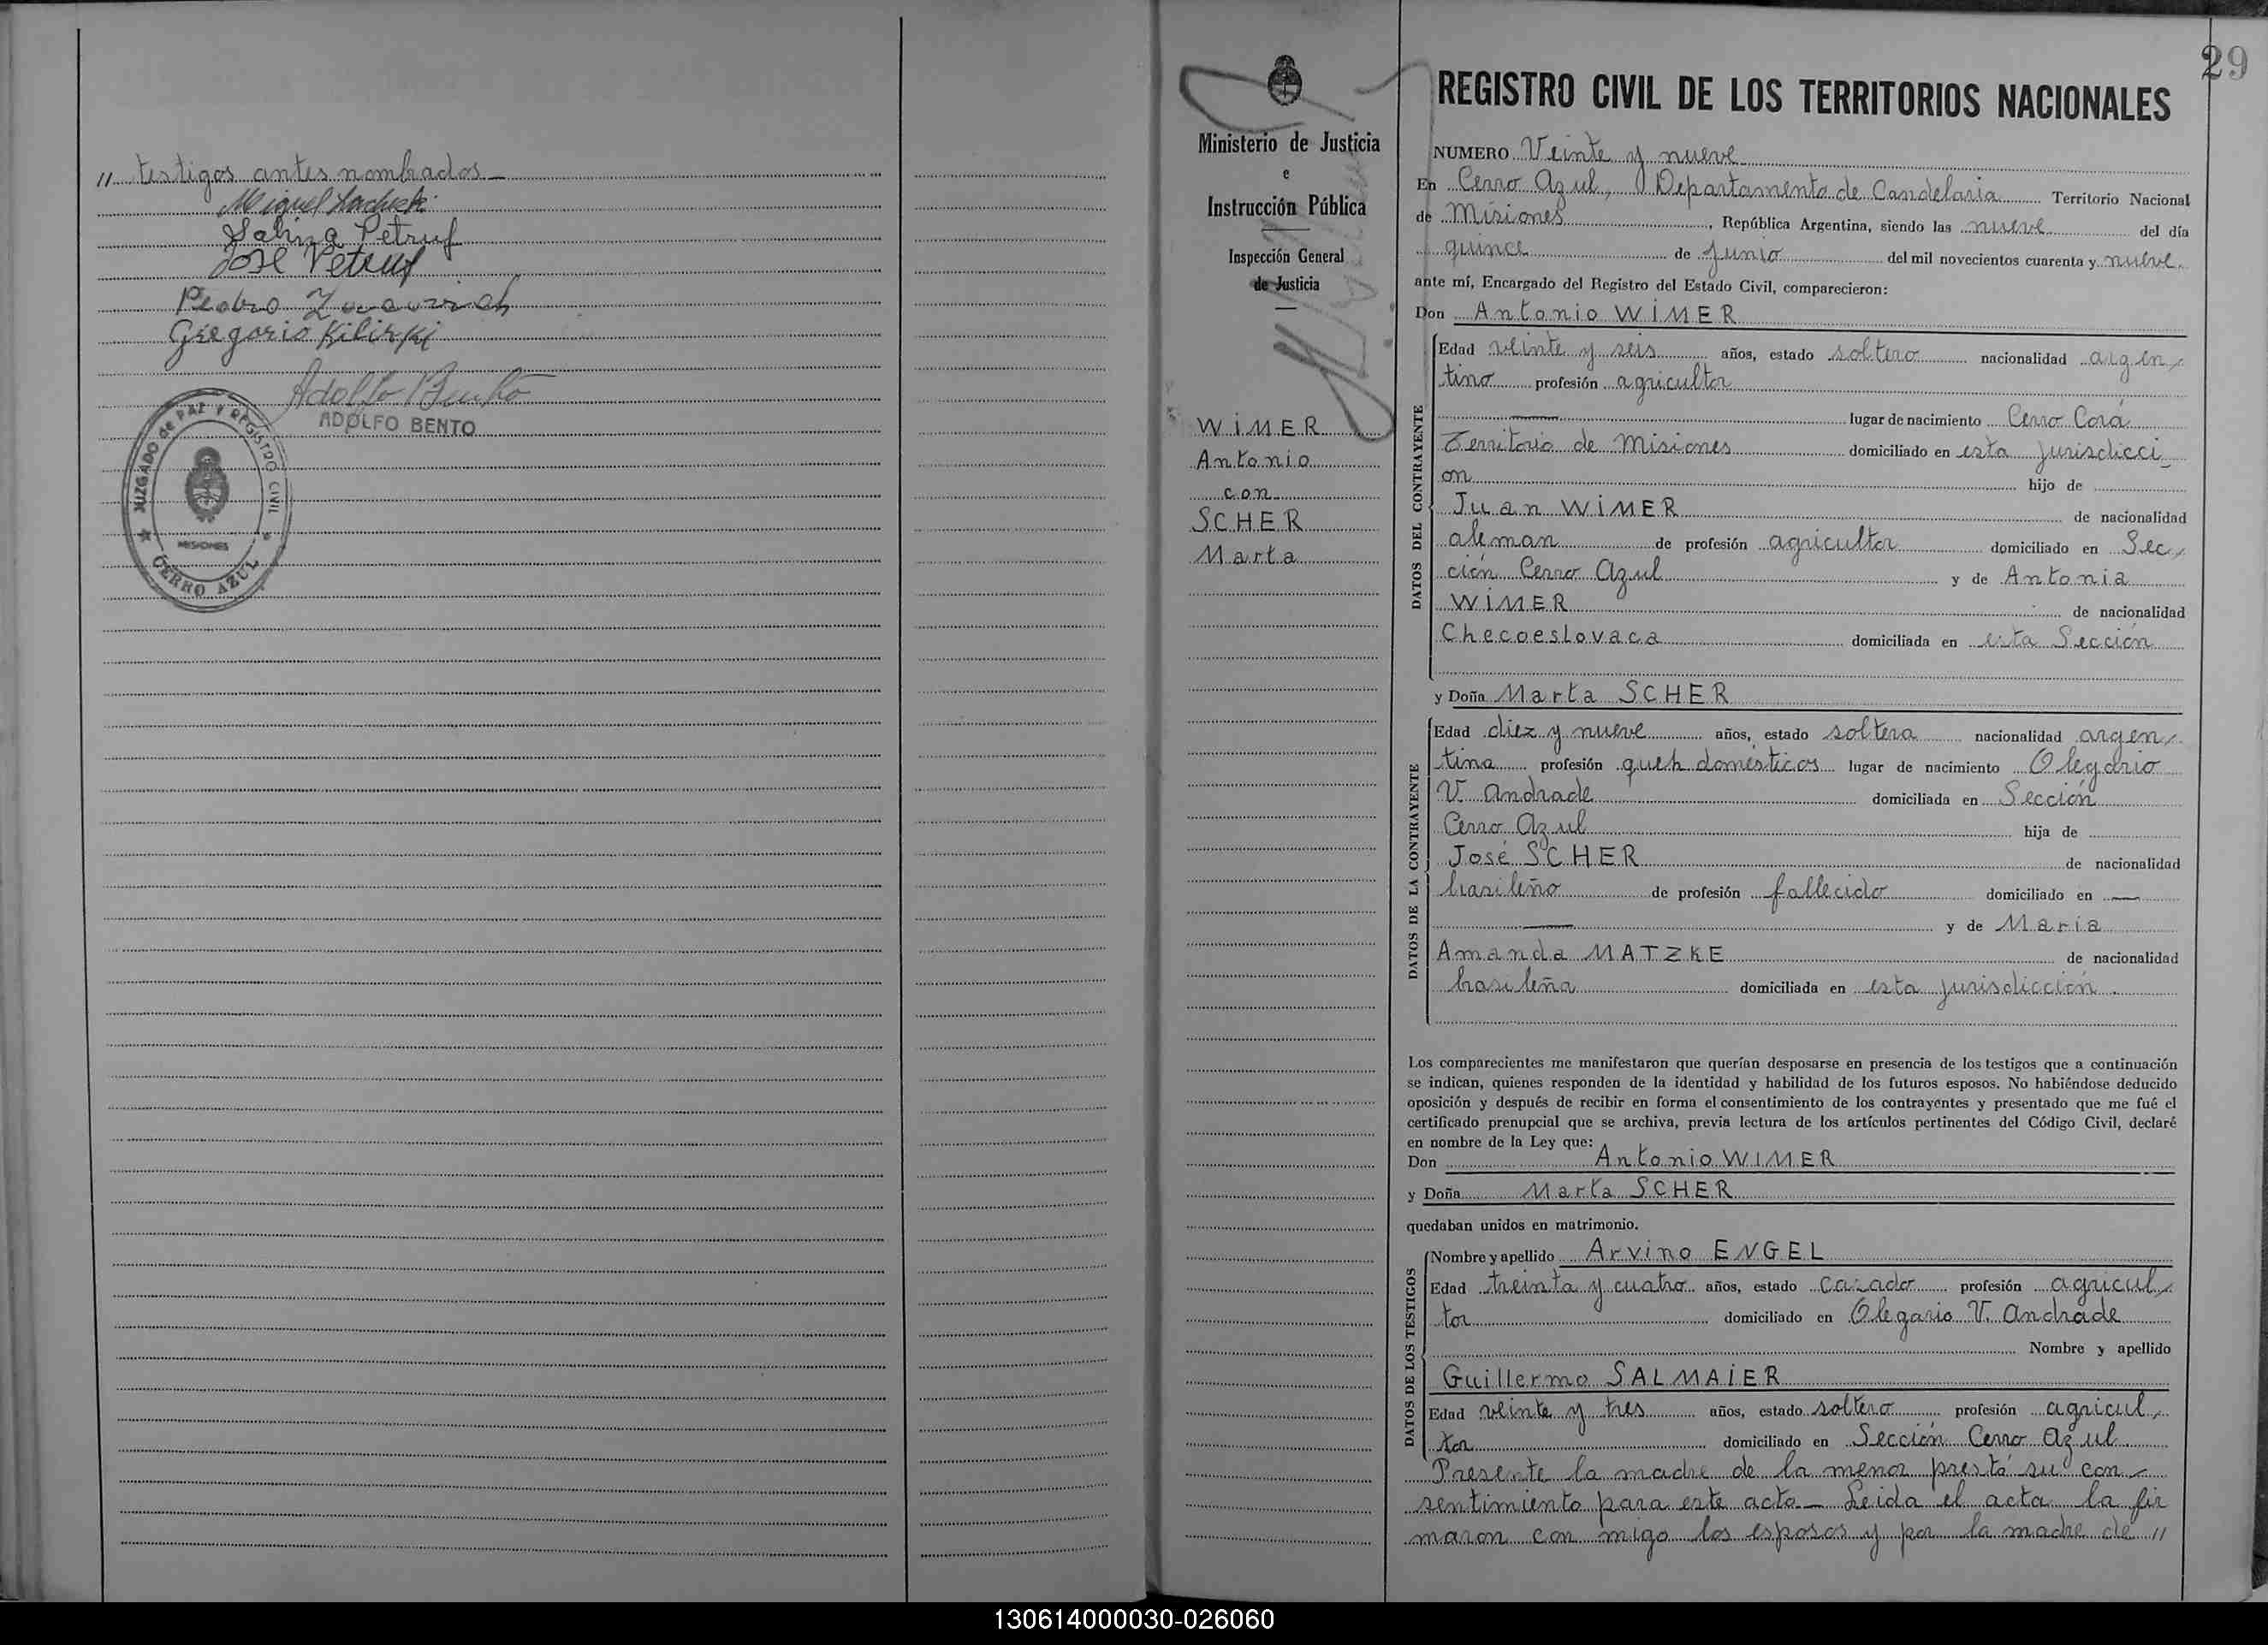 " testigos antes nombrados_
Miguel
Sabina Petruf
José Petruf
Pedro
Gregorio Kilirki
Adolfo Bento
ADOLFO BENTO
JUZGADO de PAZ Y REGISTRO CIVIL
MISIONES
CERRO AZUL
29
Ministerio de Justicia
e
Instrucción Pública
Inspección General
de Justicia
WiMER
Antonio
con
SCHER
Marta
REGISTRO CIVIL DE LOS TERRITORIOS NACIONALES
NUMERO Veinte y nueve
En Cerro Azul, Departamento de Candelaria Territorio Nacional
de Misiones, República Argentina, siendo las nueve del día
quince de Junio del mil novecientos cuarenta y nueve.
ante mí, Encargado del Registro del Estado Civil, comparecieron:
Don Antonio WiMER
DATOS DEL CONTRAYENTE
Edad veinte y seis años, estado soltero nacionalidad argen-
tino profesión agricultor
— lugar de nacimiento Cerro Corá
Territorio de Misiones domiciliado en esta jurisdicci_
on hijo de
Juan WiMER de nacionalidad
aleman de profesión agricultor domiciliado en Sec-
ción Cerro Azul y de Antonia
WiMER de nacionalidad
Checoeslovaca domiciliada en esta Sección
y Doña Marta SCHER
DATOS DE LA CONTRAYENTE
Edad diez y nueve años, estado soltera nacionalidad argen-
tina profesión queh domésticos lugar de nacimiento Olegario
V. Andrade domiciliada en Sección
Cerro Azul hija de
José SCHER de nacionalidad
brasileño de profesión fallecido domiciliado en —
— y de María
Amanda MATZKE de nacionalidad
brasileña domiciliada en esta jurisdicción.
Los comparecientes me manifestaron que querían desposarse en presencia de los testigos que a continuación
se indican, quienes responden de la identidad y habilidad de los futuros esposos. No habiéndose deducido
oposición y después de recibir en forma el consentimiento de los contrayentes y presentado que me fué el
certificado prenupcial que se archiva, previa lectura de los artículos pertinentes del Código Civil, declaré
en nombre de la Ley que:
Don Antonio WIMER
y Doña Marta SCHER
quedaban unidos en matrimonio.
DATOS DE LOS TESTIGOS
Nombre y apellido Arvino ENGEL
Edad treinta y cuatro años, estado casado profesión agricul-
tor domiciliado en Olegario V. Andrade
Nombre y apellido
Guillermo SALMAiER
Edad veinte y tres años, estado soltero profesión agricul-
tor domiciliado en Sección Cerro Azul
Presente la madre de la menor prestó su con-
sentimiento para este acto_ Leida el acta la fir
maron con migo los esposos y por la madre de "
130614000030-026060